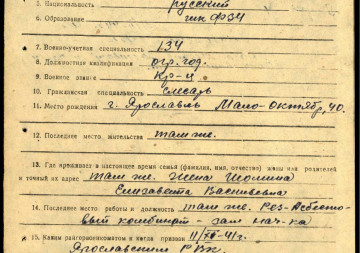 5. Национальность русский
6. Образование
7. Военно-учетная специальность 134
8. Должностная квалификация огр. год.
9. Военное звание Кр-ц
10. Гражданская специальность слесарь
11. Место рождения г. Ярославль Мало-Октябр, 40.
12. Последнее место жительства там же.
13. Где проживает в настоящее время семья (фамилия, имя, отчество) жены или родителей
и точный их адрес там же. Жена
Елизавета Васильевна
14. Последнее место работы и должность там же. Рез-Асбесто-
вый комбинат - зам нач-ка
15. Каким райгорвоенкоматом и когда призван 11/XI-41г.
Ярославским РВК